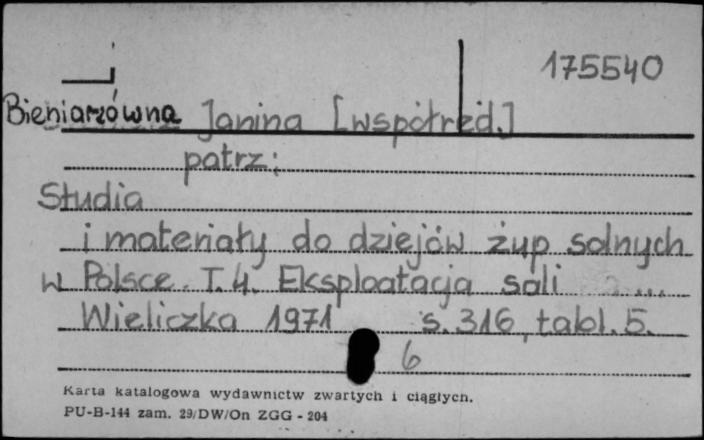 175540
Bieniarzówna Janina [współred.]
patrz:
Studia
i materiały do dziejów żup solnych
w Polsce. T. 4. Eksploatacja soli ....
Wieliczka 1971 s. 316, tabl. 5.
6
Karta katalogowa wydawnictw zwartych i ciągłych.
PU-B-144 zam. 29/DW/On ZGG - 204